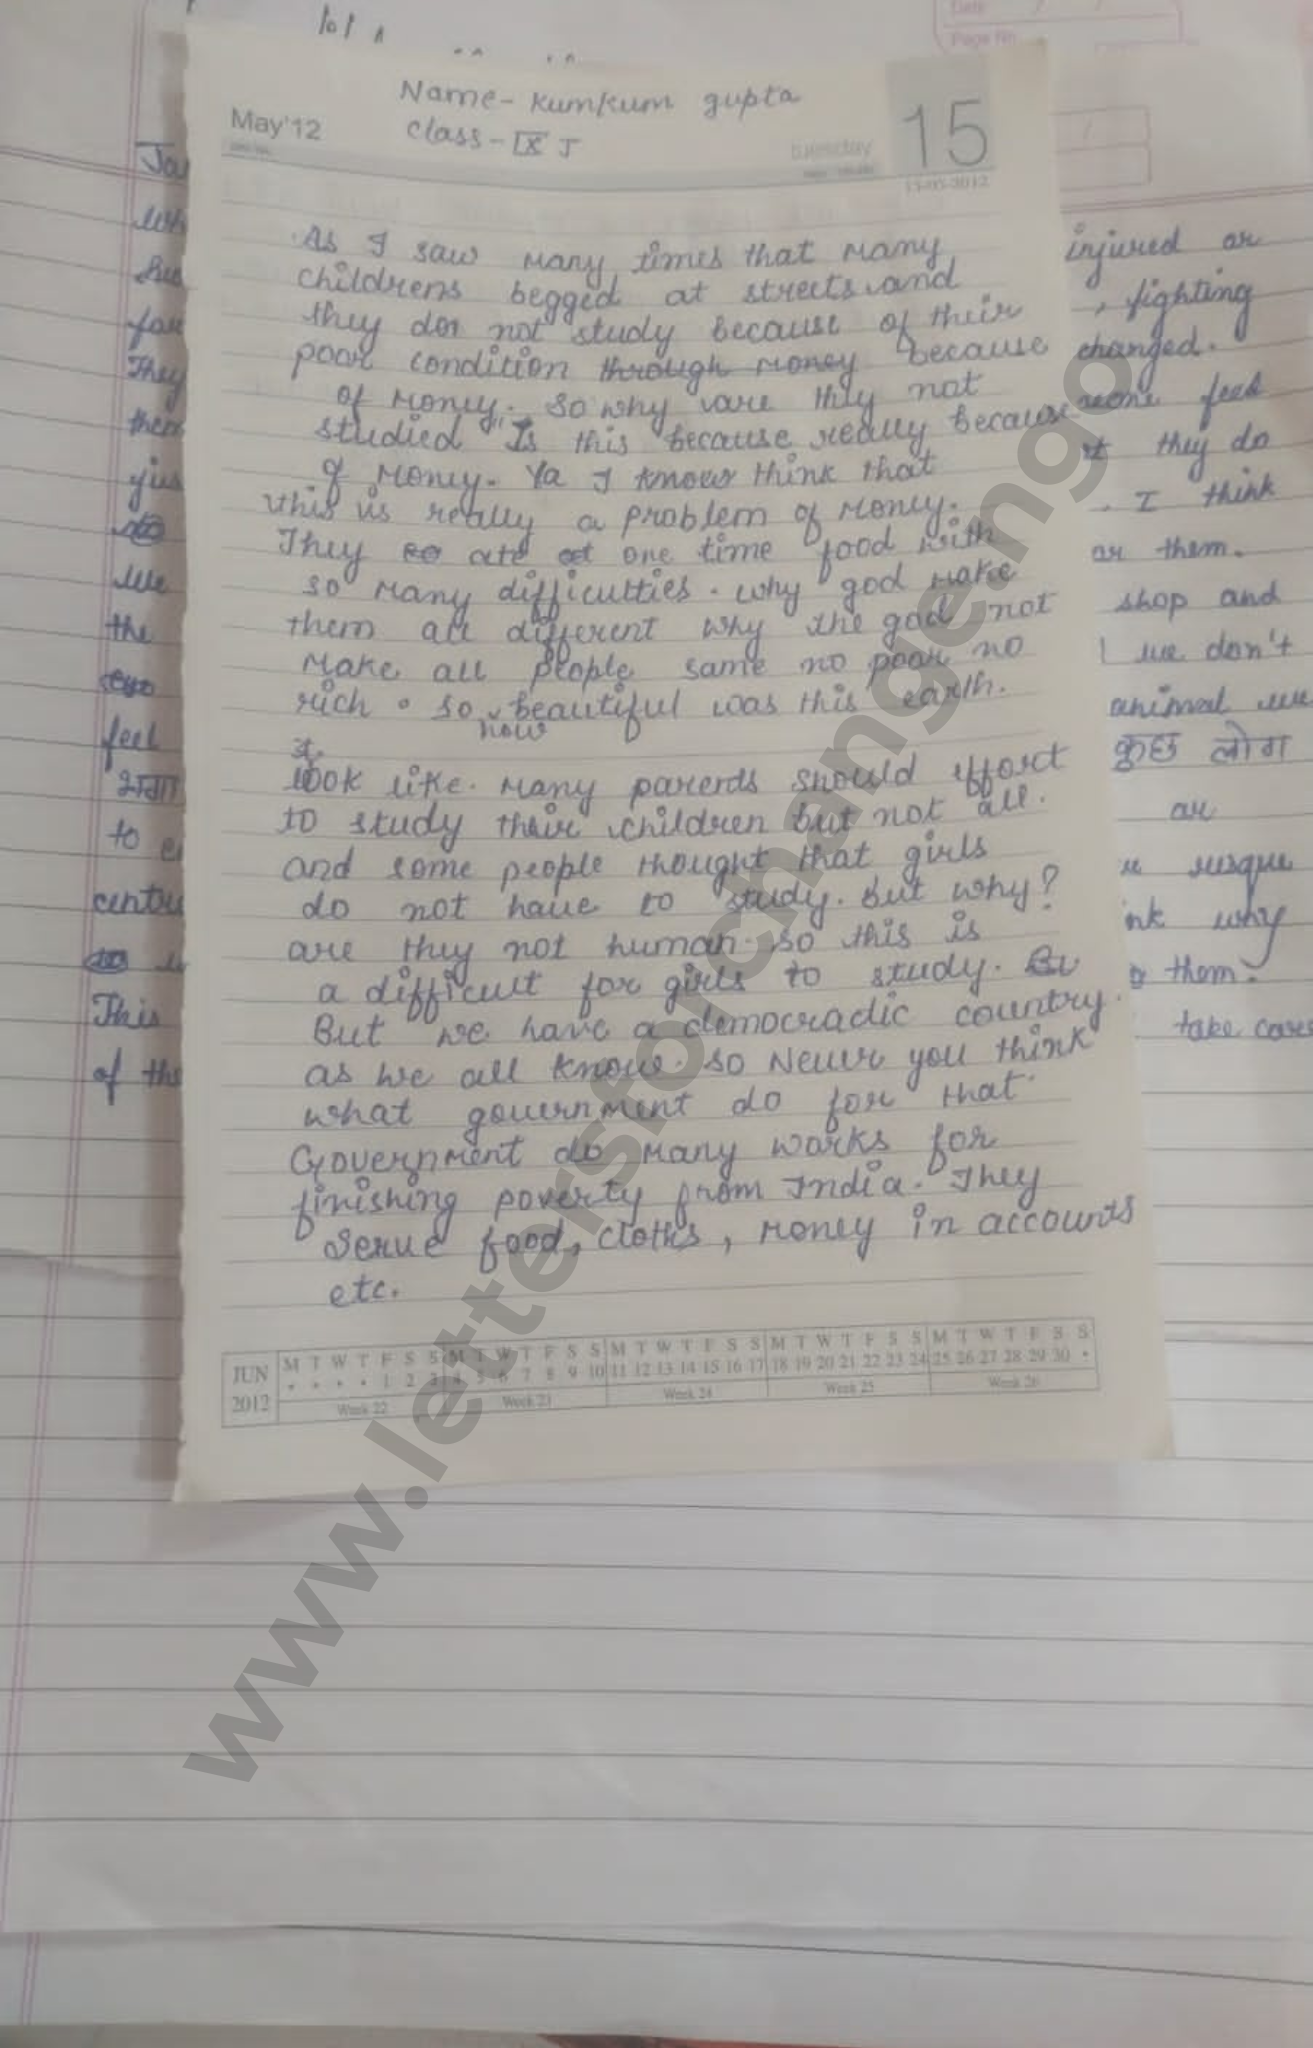 Name - Kumkum gupta
Class - IX J
May'12
tuesday
15
15-05-2012
As I saw many times that many
childrens begged at streets and
they do not study because of their
poor condition through money because
of money. So why are they not
studied "Is this because really because
of money. Ya I know think that
this is really a problem of money.
They ate one time food with
so many difficulties. why god make
them all different why the god not
make all people same no poor no
rich. So beautiful was this earth.
how
it
look like. Many parents should effort
to study their children but not all.
and some people thought that girls
do not have to study. but why?
are they not human. So this is
a difficult for girls to study. Bu
But we have a democradic country.
as we all know. So Never you think
what government do for that.
Government do many works for
finishing poverty from India. They
serve food, cloths, money in accounts
etc.
JUN 2012
M T W T F S S M T W T F S S M T W T F S S M T W T F S S M T W T F S S
• • • • 1 2 3 4 5 6 7 8 9 10 11 12 13 14 15 16 17 18 19 20 21 22 23 24 25 26 27 28 29 30 •
Week 22 Week 23 Week 24 Week 25 Week 26
Date / /
Page No
injured or
, fighting
changed.
feed
they do
. I think
or them.
shop and
we don't
animal we
कुछ लोग
or
why
them.
take care
They
the
feel
to
This
of the
www.lettersforchange.ngo